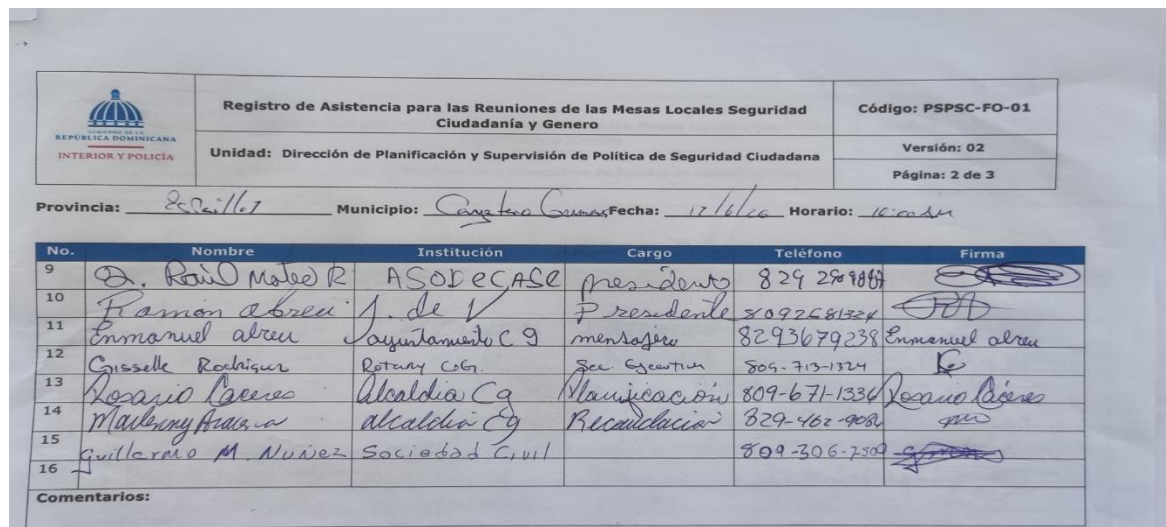 GOBIERNO DE LA
REPÚBLICA DOMINICANA
INTERIOR Y POLICÍA
Registro de Asistencia para las Reuniones de las Mesas Locales Seguridad
Ciudadanía y Genero
Código: PSPSC-FO-01
Unidad: Dirección de Planificación y Supervisión de Política de Seguridad Ciudadana
Versión: 02
Página: 2 de 3
Provincia: Espaillat Municipio: Fecha: Horario:
No. Nombre Institución Cargo Teléfono Firma
9 Raúl Mateo R ASODECASE presidente 829
10 Ramon abreu J. de V Presidente 8092681324
11 Enmanuel abreu ayuntamiento C g mensajero 8293679238 Enmanuel abreu
12 Gisselle Rodriguez Rotary Sec. Ejecutiva 809-713-1324
13 Rosario Cáceres alcaldia Cg Planificación 809-671-1334 Rosario Cáceres
14 alcaldia Cg Recaudacion 829-462-9084
15 Guillermo M. Nuñez Sociedad Civil 809-306-7509
16
Comentarios: